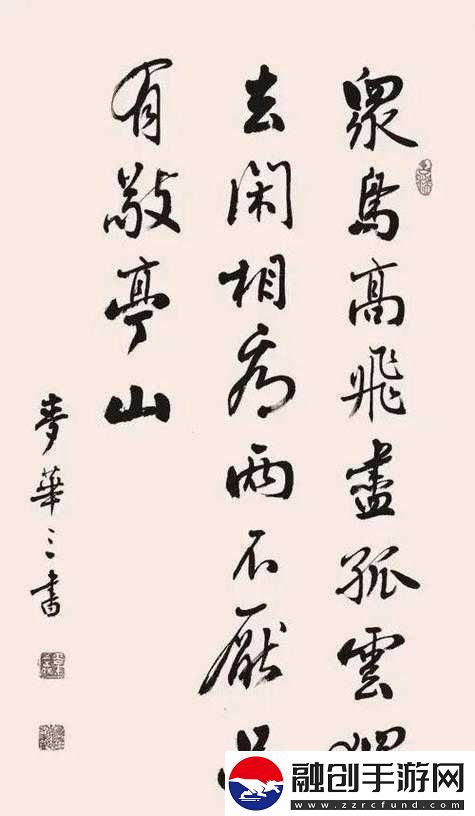 眾鳥高飛盡孤雲
去閑相看兩不厭
有敬亭山
麥華三書
融创手游网
www.zzrcfund.com